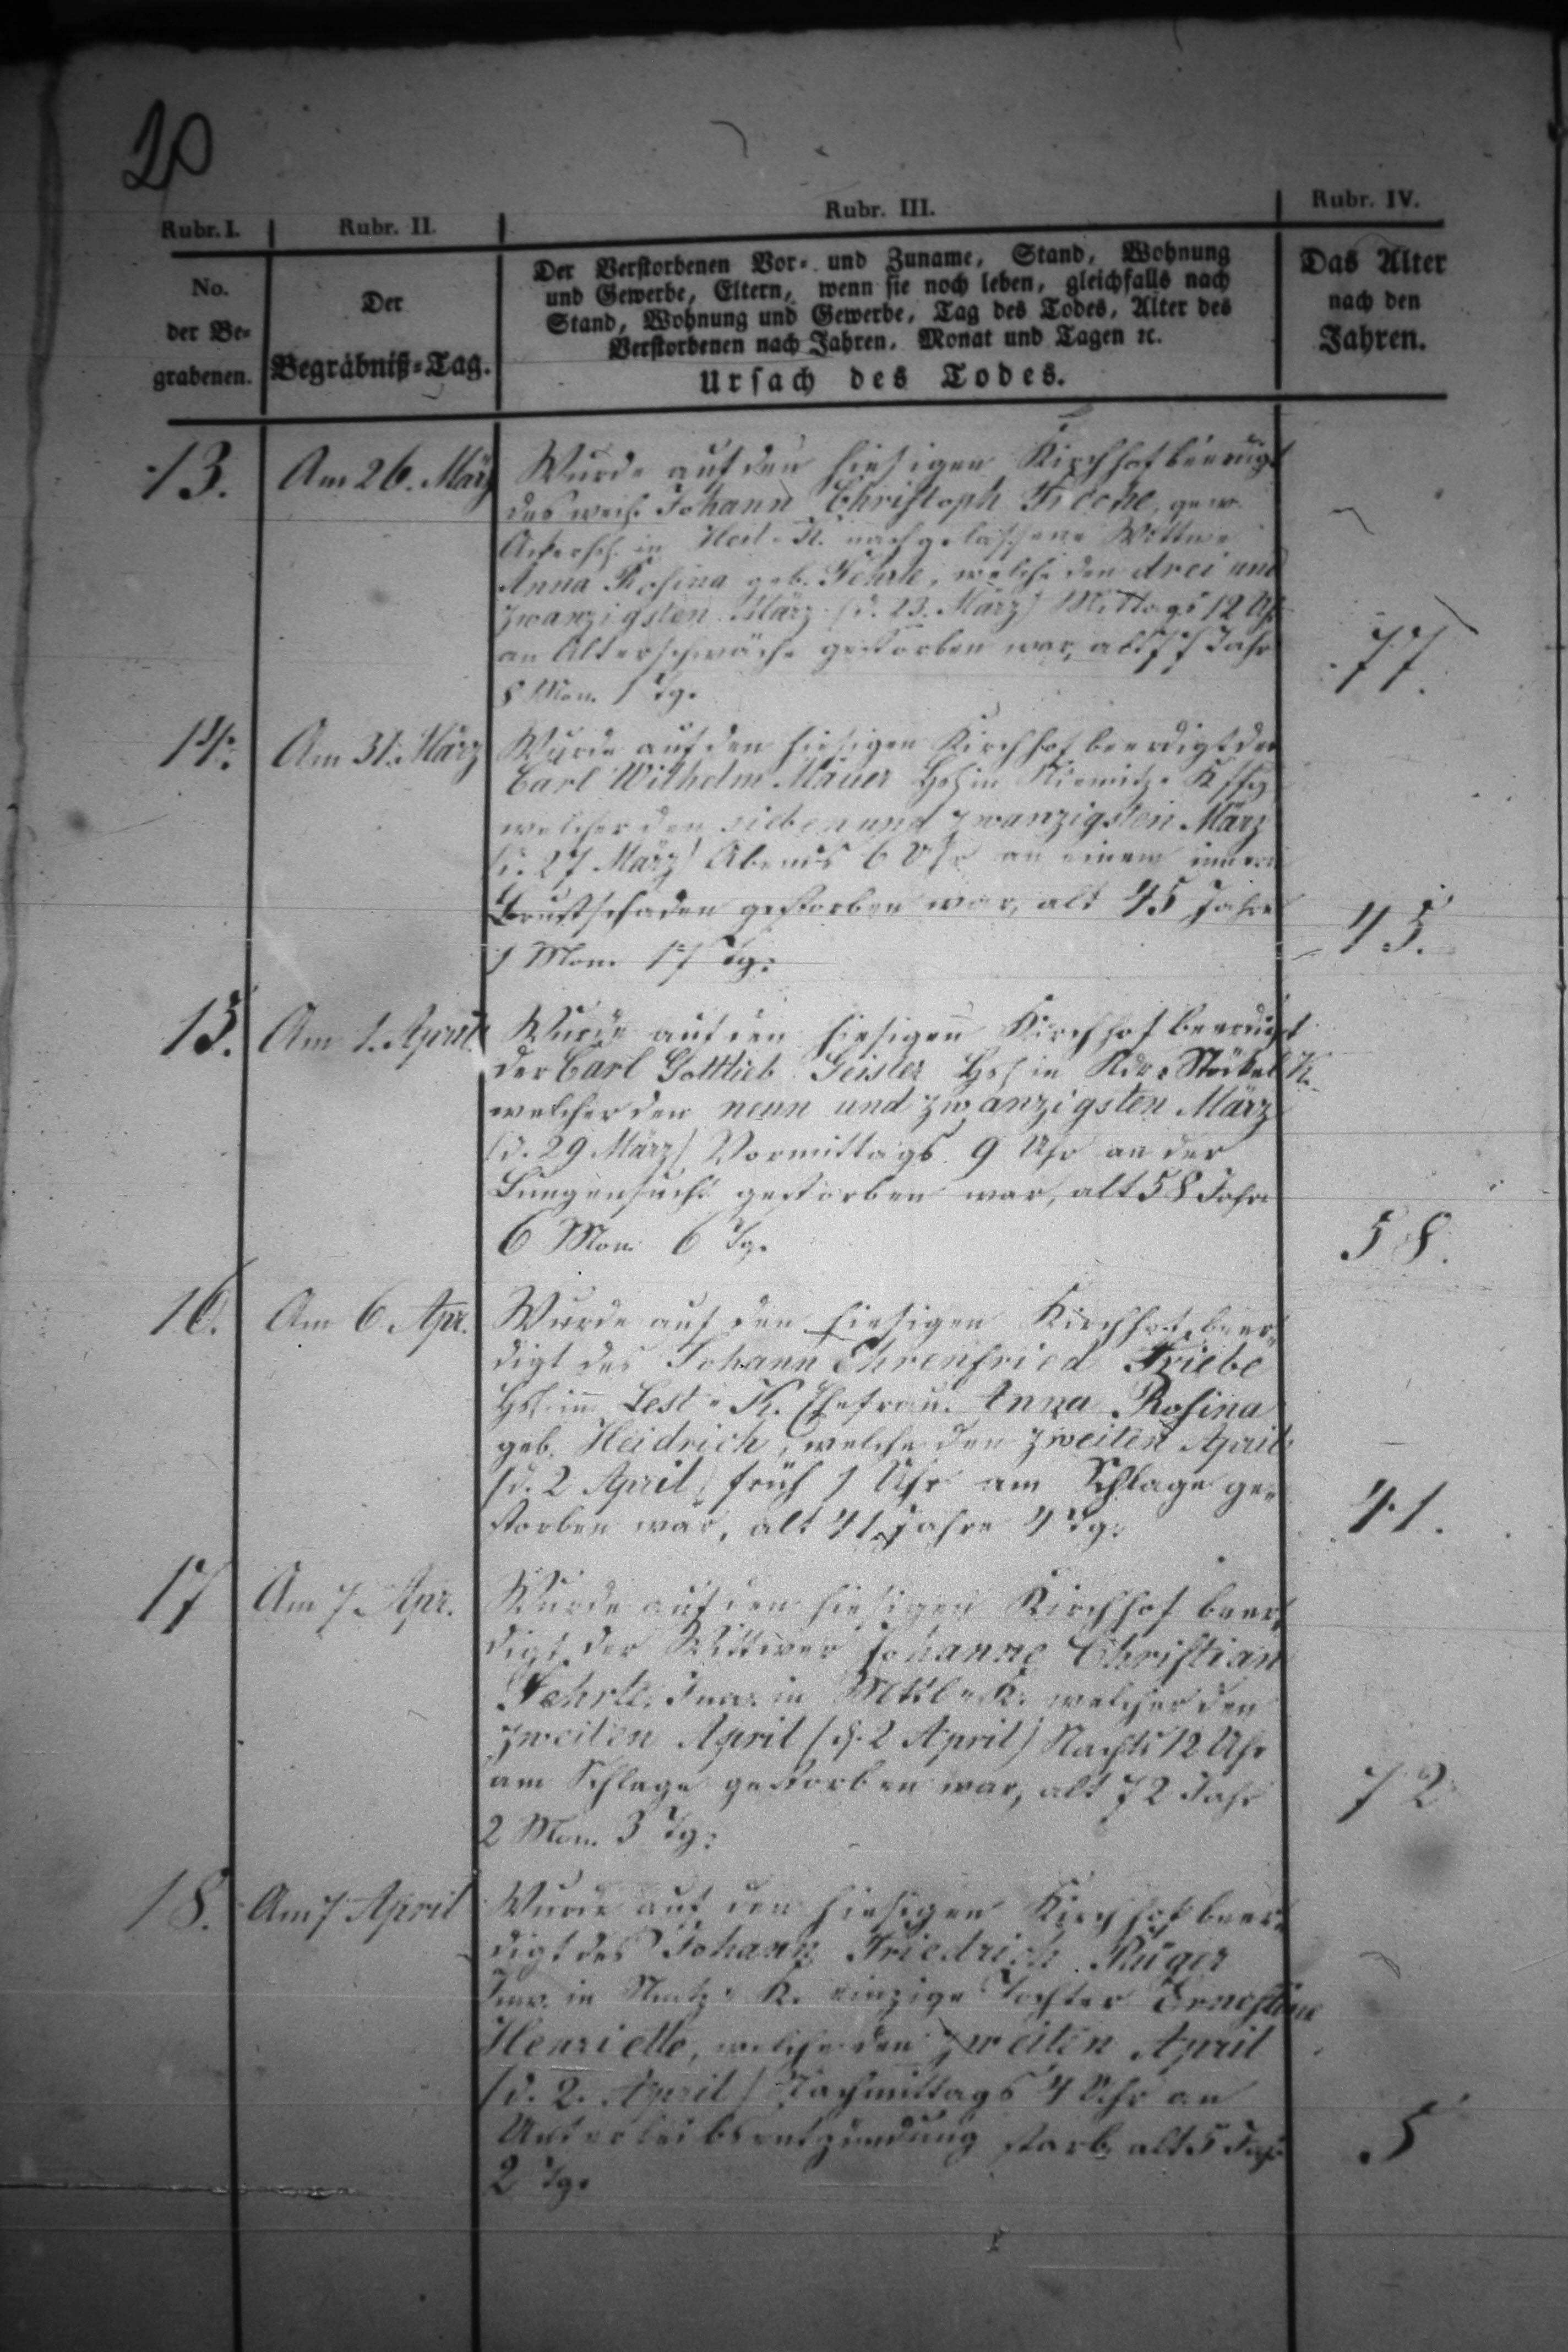 20
Rubr. I. Rubr. II. Rubr. III. Rubr. IV.
No. der Be- grabenen.
Der Begräbniß-Tag.
Der Verstorbenen Vor- und Zuname, Stand, Wohnung
und Gewerbe, Eltern, wenn sie noch leben, gleichfalls nach
Stand, Wohnung und Gewerbe, Tag des Todes, Alter des
Verstorbenen nach Jahren, Monat und Tagen ꝛc.
Ursach des Todes.
Das Alter
nach den
Jahren.
13. Am 26. März Wurde auf den hiesigen Kirchhof beerdigt
des weil. Johann Christoph gew.
in nachgelassene Wittwe
Anna Rosina geb. Fehrle, welche den drei und
zwanzigsten März (d. 23. März) Mittags 12 Uhr
an Altersschwäche gestorben war, alt 77 Jahr 77.
8 Mon. 1 Tg.
14. Am 31. März Wurde auf den hiesigen Kirchhof beerdigt der
Carl Wilhelm Mauer in
welcher den sieben und zwanzigsten März
(d. 27 März) Abends 6 Uhr an einem innern
Brustschaden gestorben war, alt 45 Jahre 45.
1 Mon. 17 Tg.
15. Am 1. April Wurde auf den hiesigen Kirchhof beerdigt
der Carl Gottlieb Geisler Hsl in Ndr: Stöckel K.
welcher den neun und zwanzigsten März
(d. 29 März) Vormittags 9 Uhr an der
Lungensucht gestorben war, alt 58 Jahre
6 Mon. 6 Tg. 58.
16. Am 6. Apr. Wurde auf den hiesigen Kirchhof beer-
digt des Johann Ehrenfried Triebe
Hsl. in Lest-K. Ehefrau Anna Rosina
geb. Heidrich, welche den zweiten April
(d. 2 April) früh 1 Uhr am Schlage ge-
storben war, alt 41 Jahre 4 Tg: 41.
17 Am 7. Apr. Wurde auf den hiesigen Kirchhof beer-
digt der Wittwer Johann Christian
Fehrle, Inw. in welcher den
zweiten April (d. 2 April) Nachts 12 Uhr
am Schlage gestorben war, alt 72 Jahr 72
2 Mon. 3 Tg:
18. Am 7 April Wurde auf den hiesigen Kirchhof beer-
digt des Johann Friedrich Rüger
Inw. in K. einzige Tochter Ernestine
Henriette, welche den zweiten April
(d. 2. April) Nachmittags 4 Uhr an
Unterleibsentzündung starb, alt 5 Jahr 5
2 Tg.